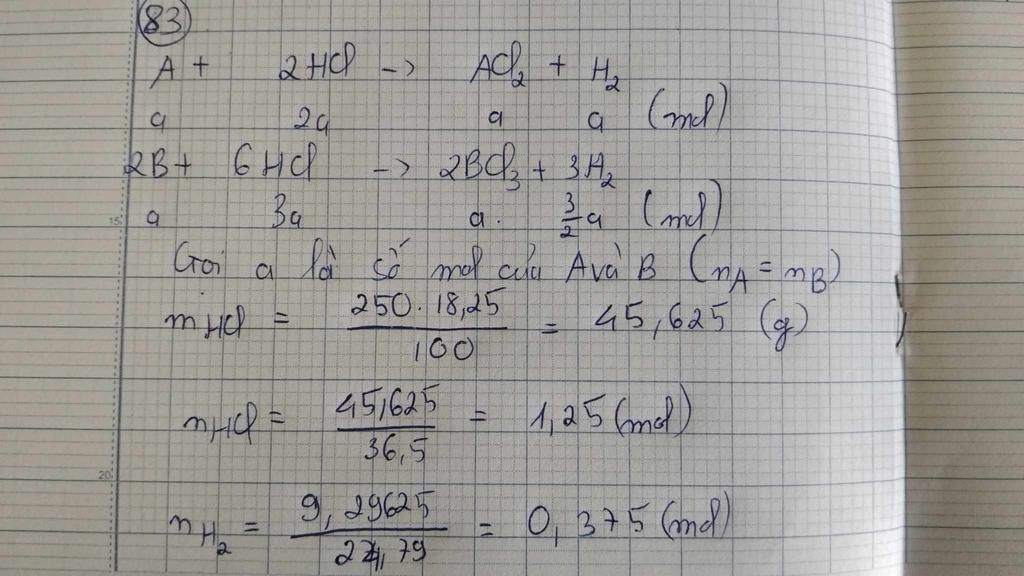 83
A + 2HCl -> ACl₂ + H₂
a 2a a a (mol)
2B + 6HCl -> 2BCl₃ + 3H₂
15 a 3a a. 3/2 a (mol)
Gọi a là số mol của A và B (n_A = n_B)
m_HCl = 250.18,25/100 = 45,625 (g)
n_HCl = 45,625/36,5 = 1,25 (mol)
20
n_H₂ = 9,29625/24,79 = 0,375 (mol)